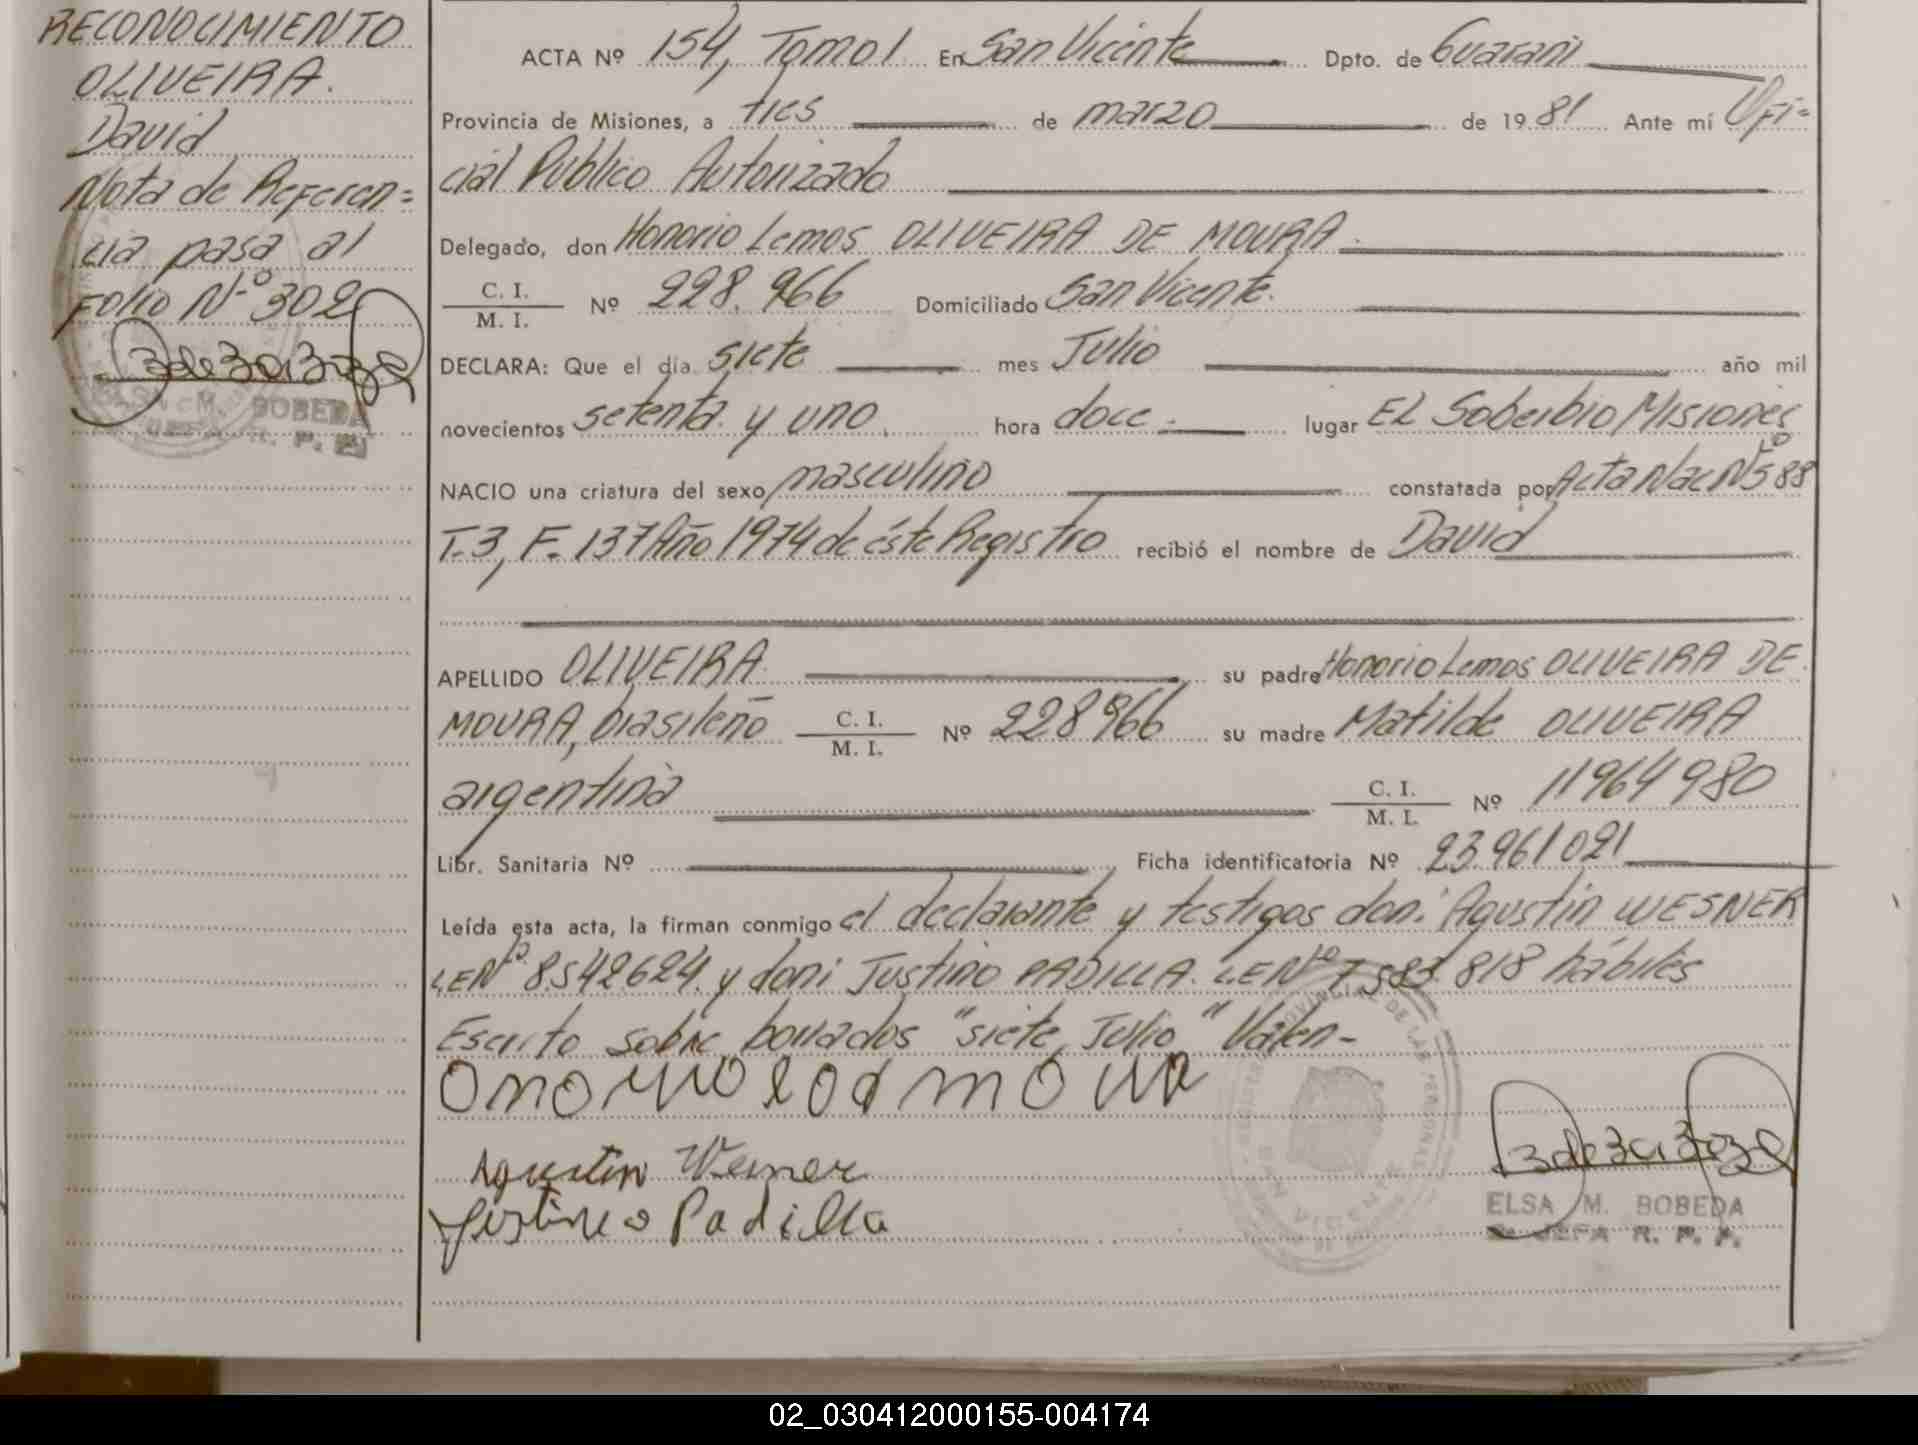 RECONOCIMIENTO
OLIVEIRA.
David
Nota de Referen=
cia pasa al
Folio Nº 302
ELSA M. BOBEDA
JEFA R. P. P.
ACTA Nº 154, Tomo 1 En San Vicente Dpto. de Guaraní
Provincia de Misiones, a tres de marzo de 1981 Ante mí Ofi=
cial Público Autorizado
Delegado, don Honorio Lemos OLIVEIRA DE MOURA.
C. I.
M. I. Nº 228.966 Domiciliado San Vicente.
DECLARA: Que el día siete mes Julio año mil
novecientos setenta y uno. hora doce.- lugar EL Soberbio Misiones
NACIO una criatura del sexo masculino constatada por Acta Nac Nº 588
T.3, F. 137 Año 1974 de éste Registro recibió el nombre de David
APELLIDO OLIVEIRA su padre Honorio Lemos OLIVEIRA DE
MOURA, brasileño C. I. M. I. Nº 228966 su madre Matilde OLIVEIRA
argentina C. I. M. I. Nº 11964980
Libr. Sanitaria Nº Ficha identificatoria Nº 23.961021
Leída esta acta, la firman conmigo el declarante y testigos don: Agustín WESNER
LE Nº 8542624. y don: Justino PADILLA. LE Nº 7583.818 hábiles
Escrito sobre borrados "siete, Julio" Valen-
Agustin Wesner
Justino Padilla
SAN VICENTE
ELSA M. BOBEDA
JEFA R. P. P.
02_030412000155-004174